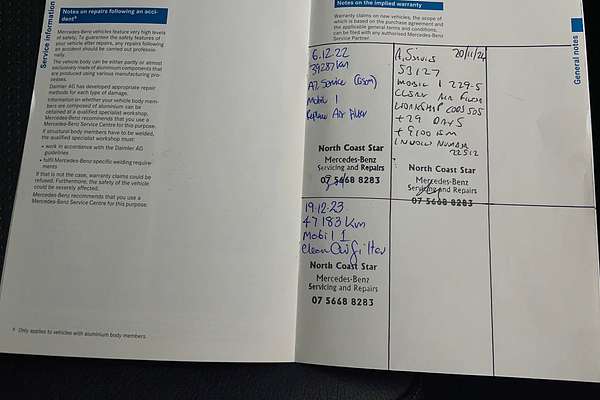 Service information
Notes on repairs following an acci-
dent⁸
Mercedes-Benz vehicles feature very high levels
of safety. To guarantee the safety features of
your vehicle after repairs, any repairs following
an accident should be carried out profession-
nally.
The vehicle body can be either partly or almost
exclusively made of aluminium components that
are produced using various manufacturing pro-
cesses.
Daimler AG has developed appropriate repair
methods for each type of damage.
Information on whether your vehicle body mem-
bers are composed of aluminium can be
obtained at a qualified specialist workshop.
Mercedes-Benz recommends that you use a
Mercedes-Benz Service Centre for this purpose.
If structural body members have to be welded,
the qualified specialist workshop must:
• work in accordance with the Daimler AG
guidelines
• fulfil Mercedes-Benz specific welding require-
ments
If that is not the case, warranty claims could be
refused. Furthermore, the safety of the vehicle
could be severely affected.
Mercedes-Benz recommends that you use a
Mercedes-Benz Service Centre for this purpose.
Only applies to vehicles with aluminium body members.
Notes on the implied warranty
Warranty claims on new vehicles, the scope of
which is based on the purchase agreement and
the applicable general terms and conditions,
can be filed with any authorised Mercedes-Benz
Service Partner.
General notes
6.12.22
39287 Km
A2 Service
Mobil 1
Replace Air Filter
North Coast Star
Mercedes-Benz
Servicing and Repairs
07 5668 8283
A, Service 20/11/24
53127
MOBIL 1 229-5
CLEAN AIR FILTER
WORKSHOP CODE 505
+29 DAYS
+9100 KM
INVOICE NUMBER
22512
North Coast Star
Mercedes-Benz
Servicing and Repairs
07 5668 8283
19.12.23
47183 Km
Mobil 1
Clean Air filter
North Coast Star
Mercedes-Benz
Servicing and Repairs
07 5668 8283